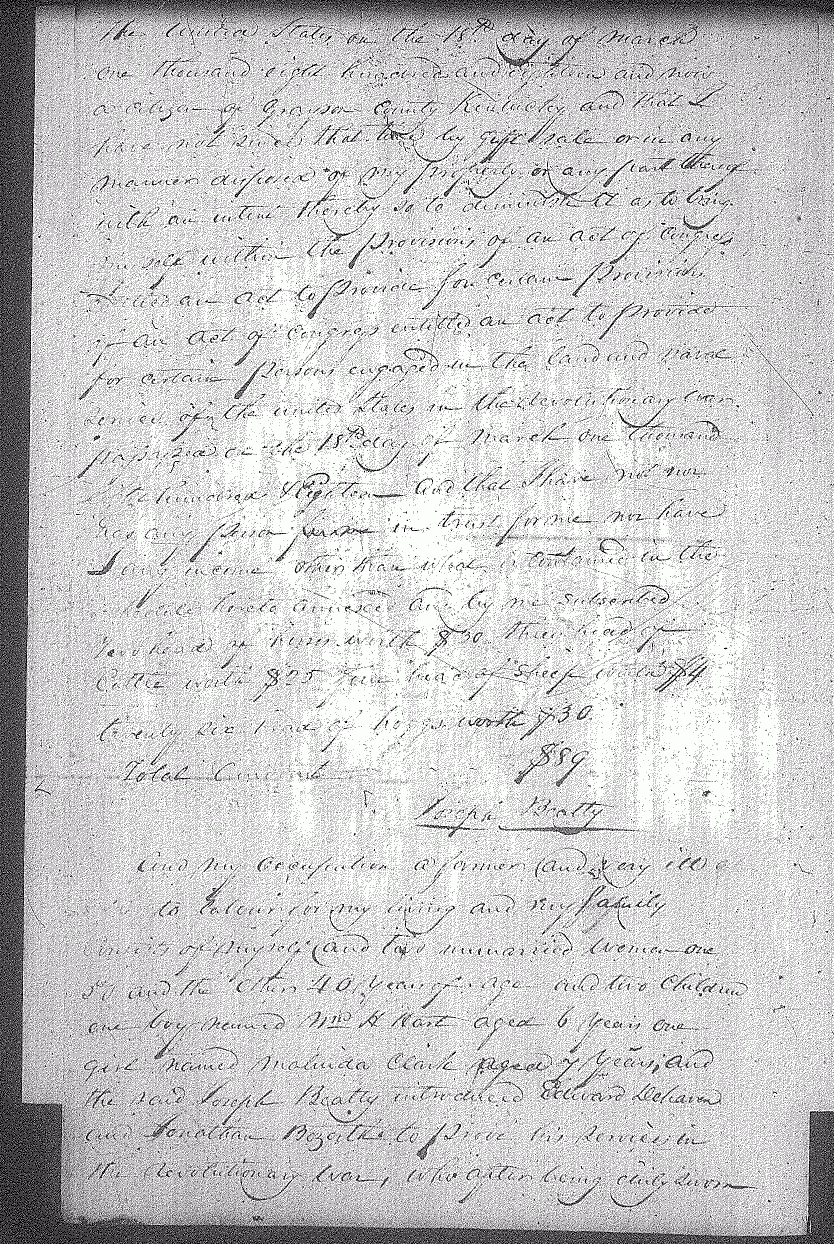 The United States on the 18th day of March
one thousand eight hundred and eighteen and now
a citizen of Grayson County Kentucky and that I
have not since that time by gift sale or in any
manner disposed of my property or any part thereof
with an intent thereby so to diminish it as to bring
my self within the Provisions of an act of Congress
an act to Provide for certain Provision
of an act of Congress entitled an act to provide
for certain Persons engaged in the land and naval
service of the united States in the Revolutionary War
passed on the 18th day of March one thousand
hundred & Eighteen and that I have not nor
has any person in trust for me nor have
I any income other than what is contained in the
hereto annexed and by me subscribed
Two head of horses worth $30 three head of
Cattle worth $25 head of Sheep worth $4
twenty six head of hoggs worth $30.
Total $89
Joseph Beatty
And my occupation a farmer and very ill
to labour for my living and my family
consists of myself and two unmarried women one
50 and the other 40 years of age and two children
one boy named Wm H Hart aged 6 years one
girl named Malinda Clark aged 7 years, and
the said Joseph Beatty introduced Edward Dehaven
and Jonathan Bozerth to prove his services in
the Revolutionary War, who after being duly sworn